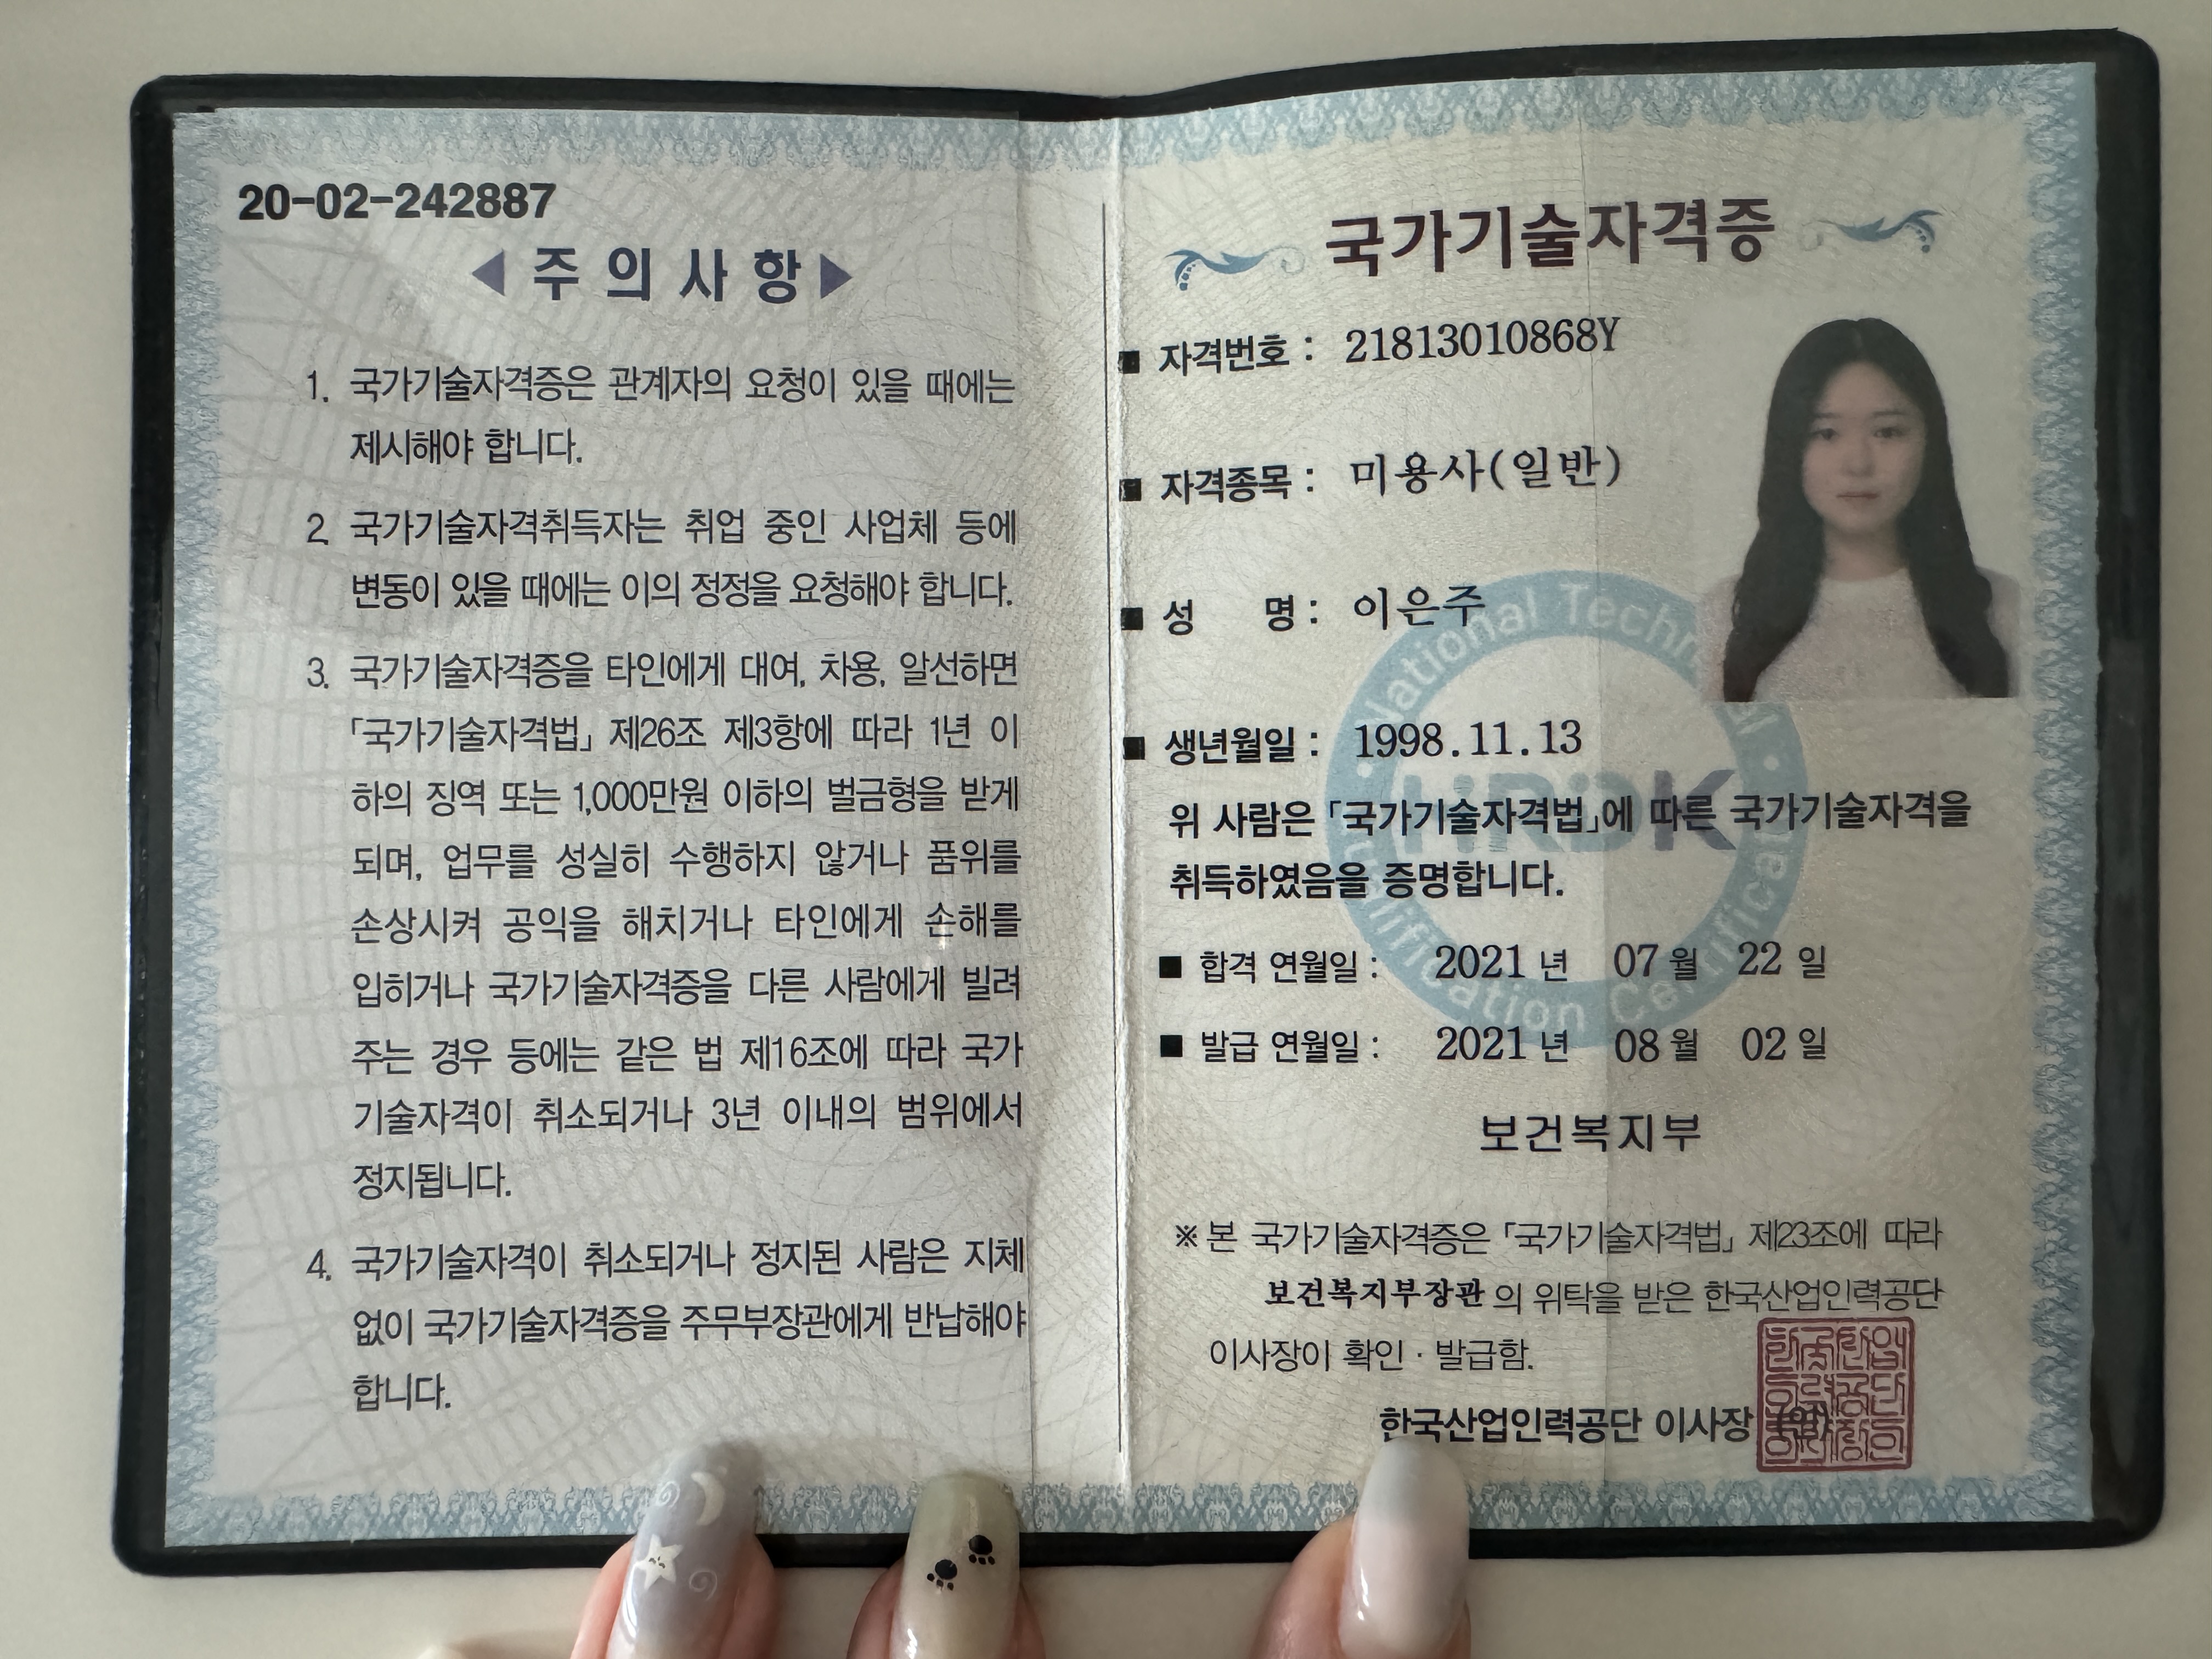 20-02-242887
◀ 주 의 사 항 ▶
1. 국가기술자격증은 관계자의 요청이 있을 때에는
제시해야 합니다.
2. 국가기술자격취득자는 취업 중인 사업체 등에
변동이 있을 때에는 이의 정정을 요청해야 합니다.
3. 국가기술자격증을 타인에게 대여, 차용, 알선하면
「국가기술자격법」 제26조 제3항에 따라 1년 이
하의 징역 또는 1,000만원 이하의 벌금형을 받게
되며, 업무를 성실히 수행하지 않거나 품위를
손상시켜 공익을 해치거나 타인에게 손해를
입히거나 국가기술자격증을 다른 사람에게 빌려
주는 경우 등에는 같은 법 제16조에 따라 국가
기술자격이 취소되거나 3년 이내의 범위에서
정지됩니다.
4. 국가기술자격이 취소되거나 정지된 사람은 지체
없이 국가기술자격증을 주무부장관에게 반납해야
합니다.
국가기술자격증
■ 자격번호 : 21813010868Y
■ 자격종목 : 미용사(일반)
■ 성 명 : 이은주
■ 생년월일 : 1998.11.13
위 사람은 「국가기술자격법」에 따른 국가기술자격을
취득하였음을 증명합니다.
■ 합격 연월일 : 2021 년 07 월 22 일
■ 발급 연월일 : 2021 년 08 월 02 일
보건복지부
※ 본 국가기술자격증은 「국가기술자격법」 제23조에 따라
보건복지부장관 의 위탁을 받은 한국산업인력공단
이사장이 확인 · 발급함.
한국산업인력공단 이사장 (인)
HRDK